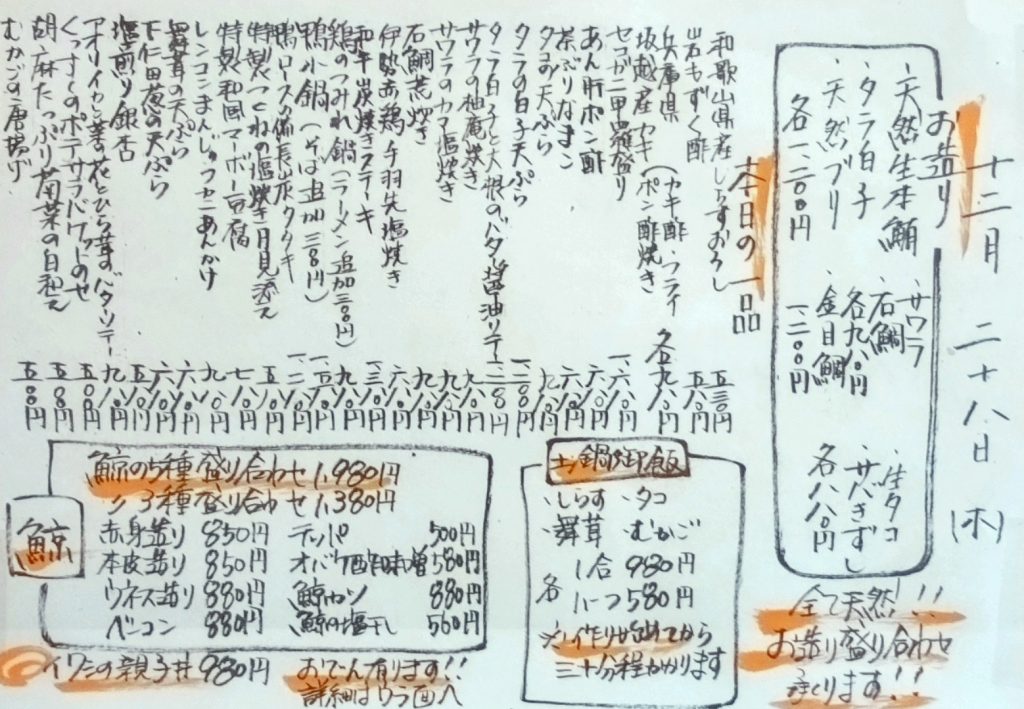 十二月 二十八日 (木)
お造り
・天然生本鮪
・タラ白子
・天然ブリ
各一、二〇〇円
サワラ
石鯛
各九八〇円
金目鯛
一、二〇〇円
・生タコ
・サバきずし
各八八〇円
全て天然!!
お造り盛り合わせ
承ります!!
本日の一品
和歌山県産しらすおろし 五三〇円
岩もずく酢 五八〇円
兵庫県
坂越産カキ(カキ酢・フライ・ポン酢焼き) 各九八〇円
セコガニ甲羅盛り
あん肝ポン酢
茶ぶりなまこ
タコの天ぷら
タラの白子天ぷら
タラ白子と大根のバタ醤油ソテー
サワラの柚庵焼き
サワラのカマ塩焼き
石鯛荒炊き
伊勢赤鶏手羽先塩焼き
和牛炭焼きステーキ
鶏のつみれ鍋(ラーメン追加三〇〇円)
鴨小鍋(そば追加三八〇円)
鴨ロースの備長炭タタキ
特製つくねの塩焼き月見添え
特製和風マーボー豆腐
レンコンまんじゅうカニあんかけ
舞茸の天ぷら
下仁田葱の天ぷら
塩煎り銀杏
アオリイカと菜の花とひら茸のバタソテー
くんさきのポテサラバケットのせ
胡麻たっぷり菊菜の白和え 五八〇円
むかごの唐揚げ 五〇〇円
土鍋御飯
・しらす ・タコ
・舞茸 むかご
各 1合 980円
ハーフ580円
※作り始めてから
三十分程かかります
鯨
鯨の5種盛り合わせ1,980円
〃 3種盛り合わせ1,380円
赤身造り 850円
本皮造り 850円
ウネス造り 880円
ベーコン 880円
テッパ 500円
オバケ酢味噌 580円
鯨カツ 880円
鯨の塩干し 560円
イワシの親子丼 980円
おでん有ります!!
詳細はウラ面へ